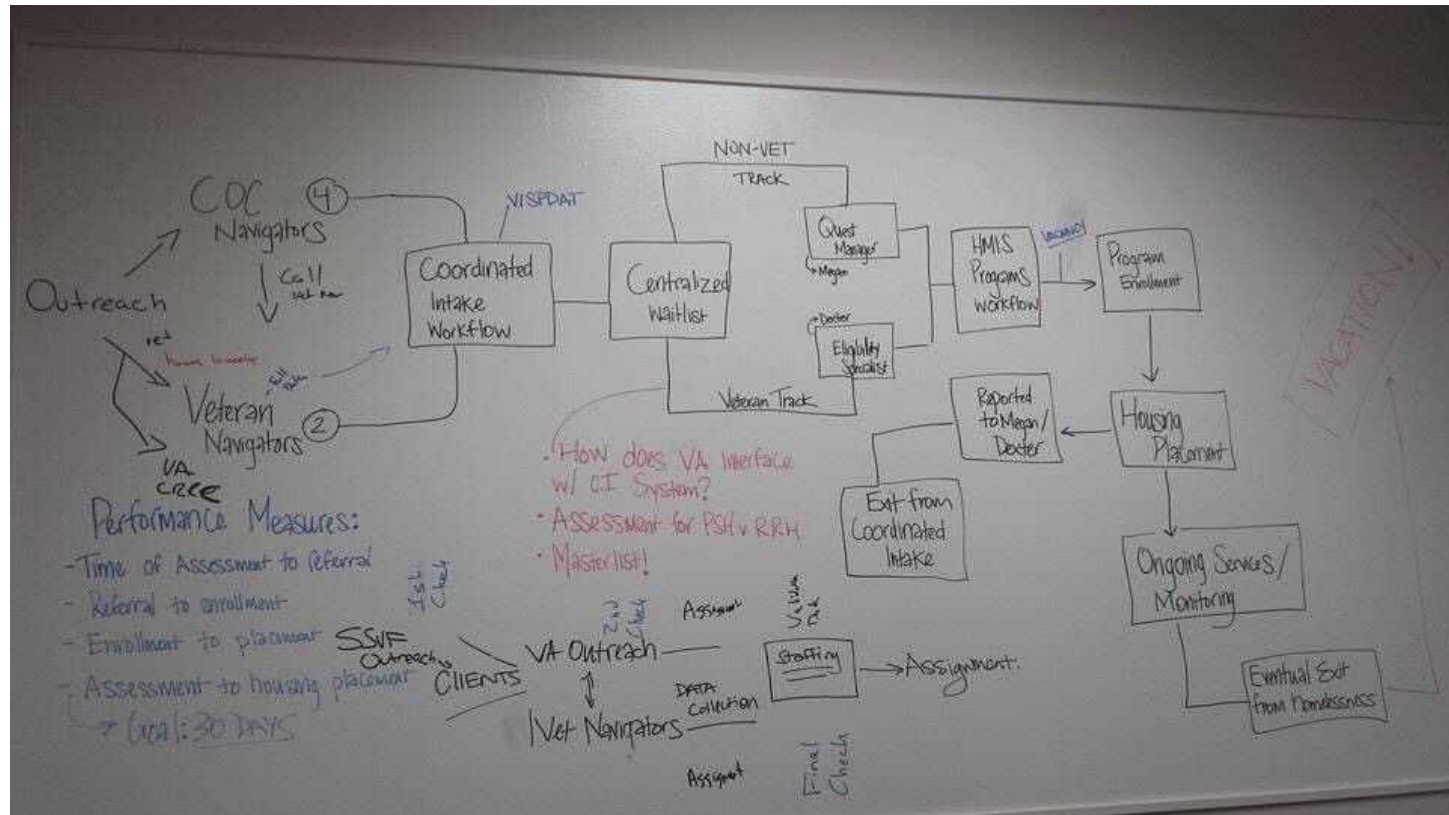 NON-VET
TRACK
COC
Navigators
4
VISPDAT
Call
Outreach
vet
Veteran
Navigators
2
VA
CRRC
Coordinated
Intake
Workflow
Centralized
Waitlist
Quest
Manager
Megan
Dexter
Eligibility
Specialist
Veteran Track
HMIS
Programs
Workflow
VACANCY
Program
Enrollment
VACATION!
Housing
Placement
Reported
to Megan/
Dexter
Exit from
Coordinated
Intake
Ongoing Services/
Monitoring
Eventual Exit
from homelessness
• How does VA interface
w/ C.I System?
• Assessment for PSH v RRH
• Masterlist!
Performance Measures:
- Time of Assessment to referral
- Referral to enrollment
- Enrollment to placement
- Assessment to housing placement
Goal: 30 DAYS
1st
Check
SSVF
Outreach
CLIENTS
2nd
Check
VA Outreach
Vet Navigators
Assignment
DATA
Collection
Assignment
Staffing
Assignment.
Final
Check